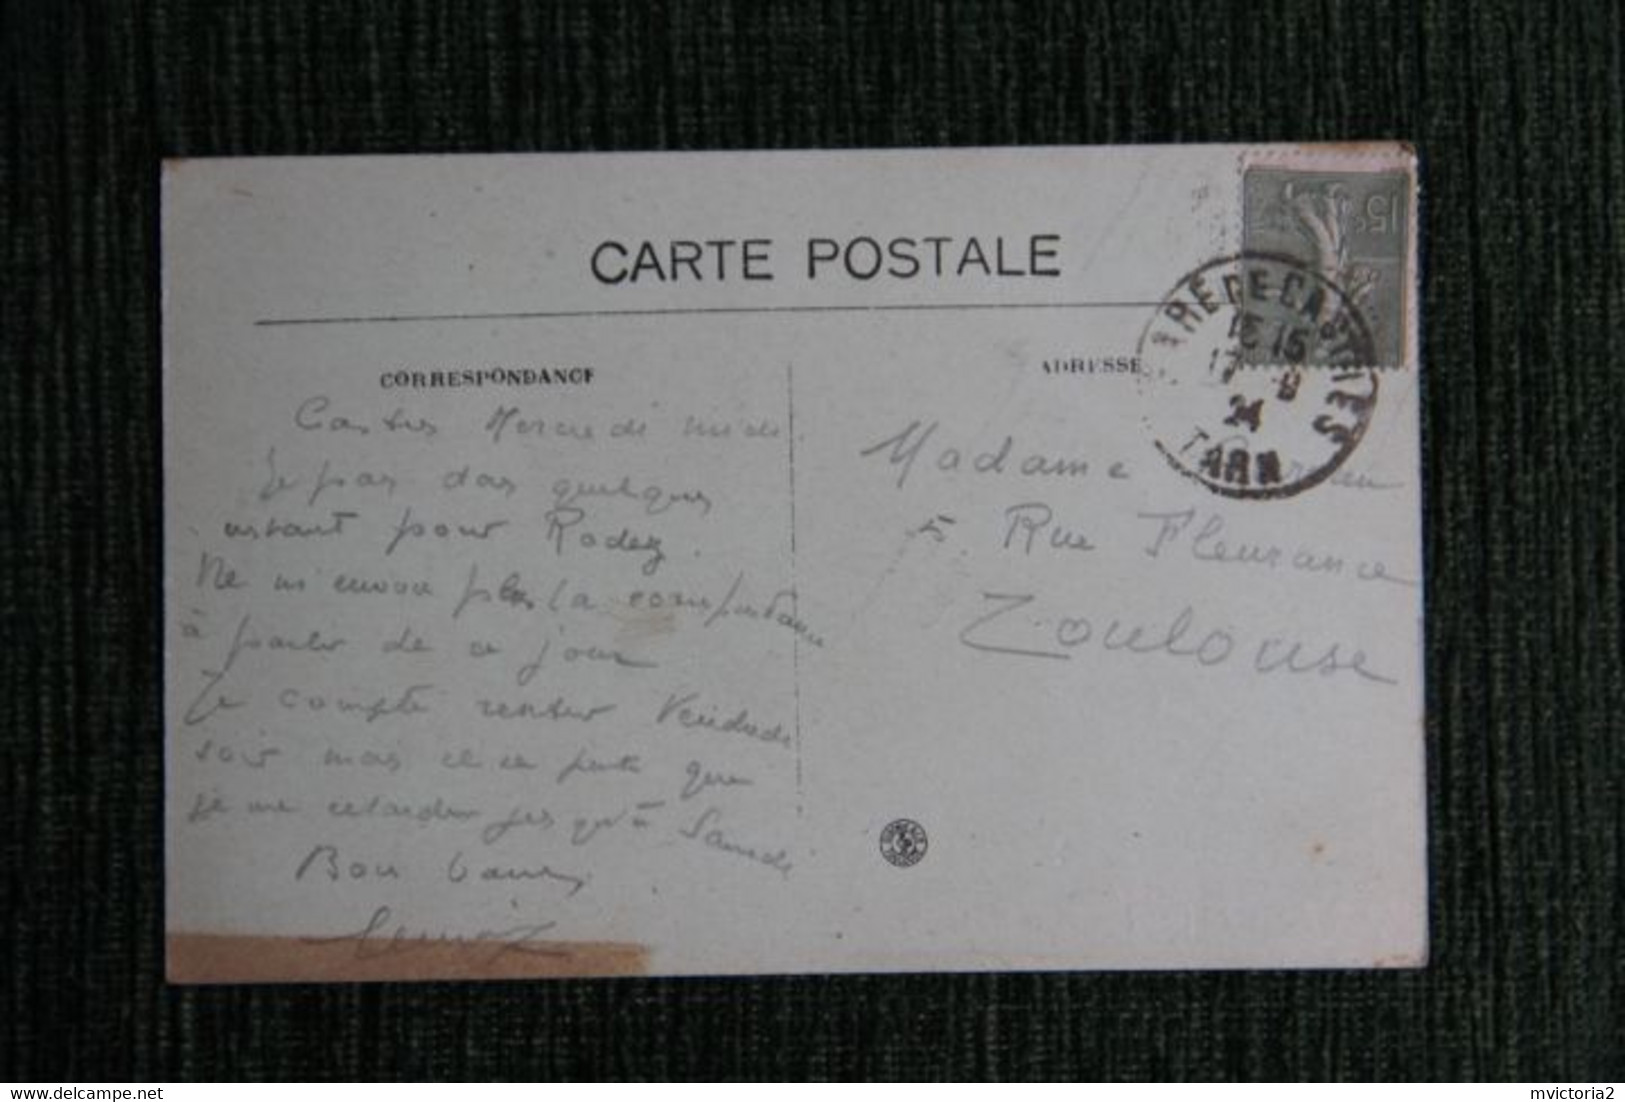 CARTE POSTALE
CORRESPONDANCE
Castres Mercredi midi.
Je pars dans quelques
instant pour Rodez.
Ne m'envoie plus la correspondance
à partir de ce jour
Je compte rentrer Vendredi
soir mais il se peut que
je me retarder jusqu'à Samedi
Bon baisers
ADRESSE
Madame
5. Rue Fleurance
Toulouse
15c
GARE DE CASTRES
15 15
17 9
24
TARN
delcampe.net
mvictoria2